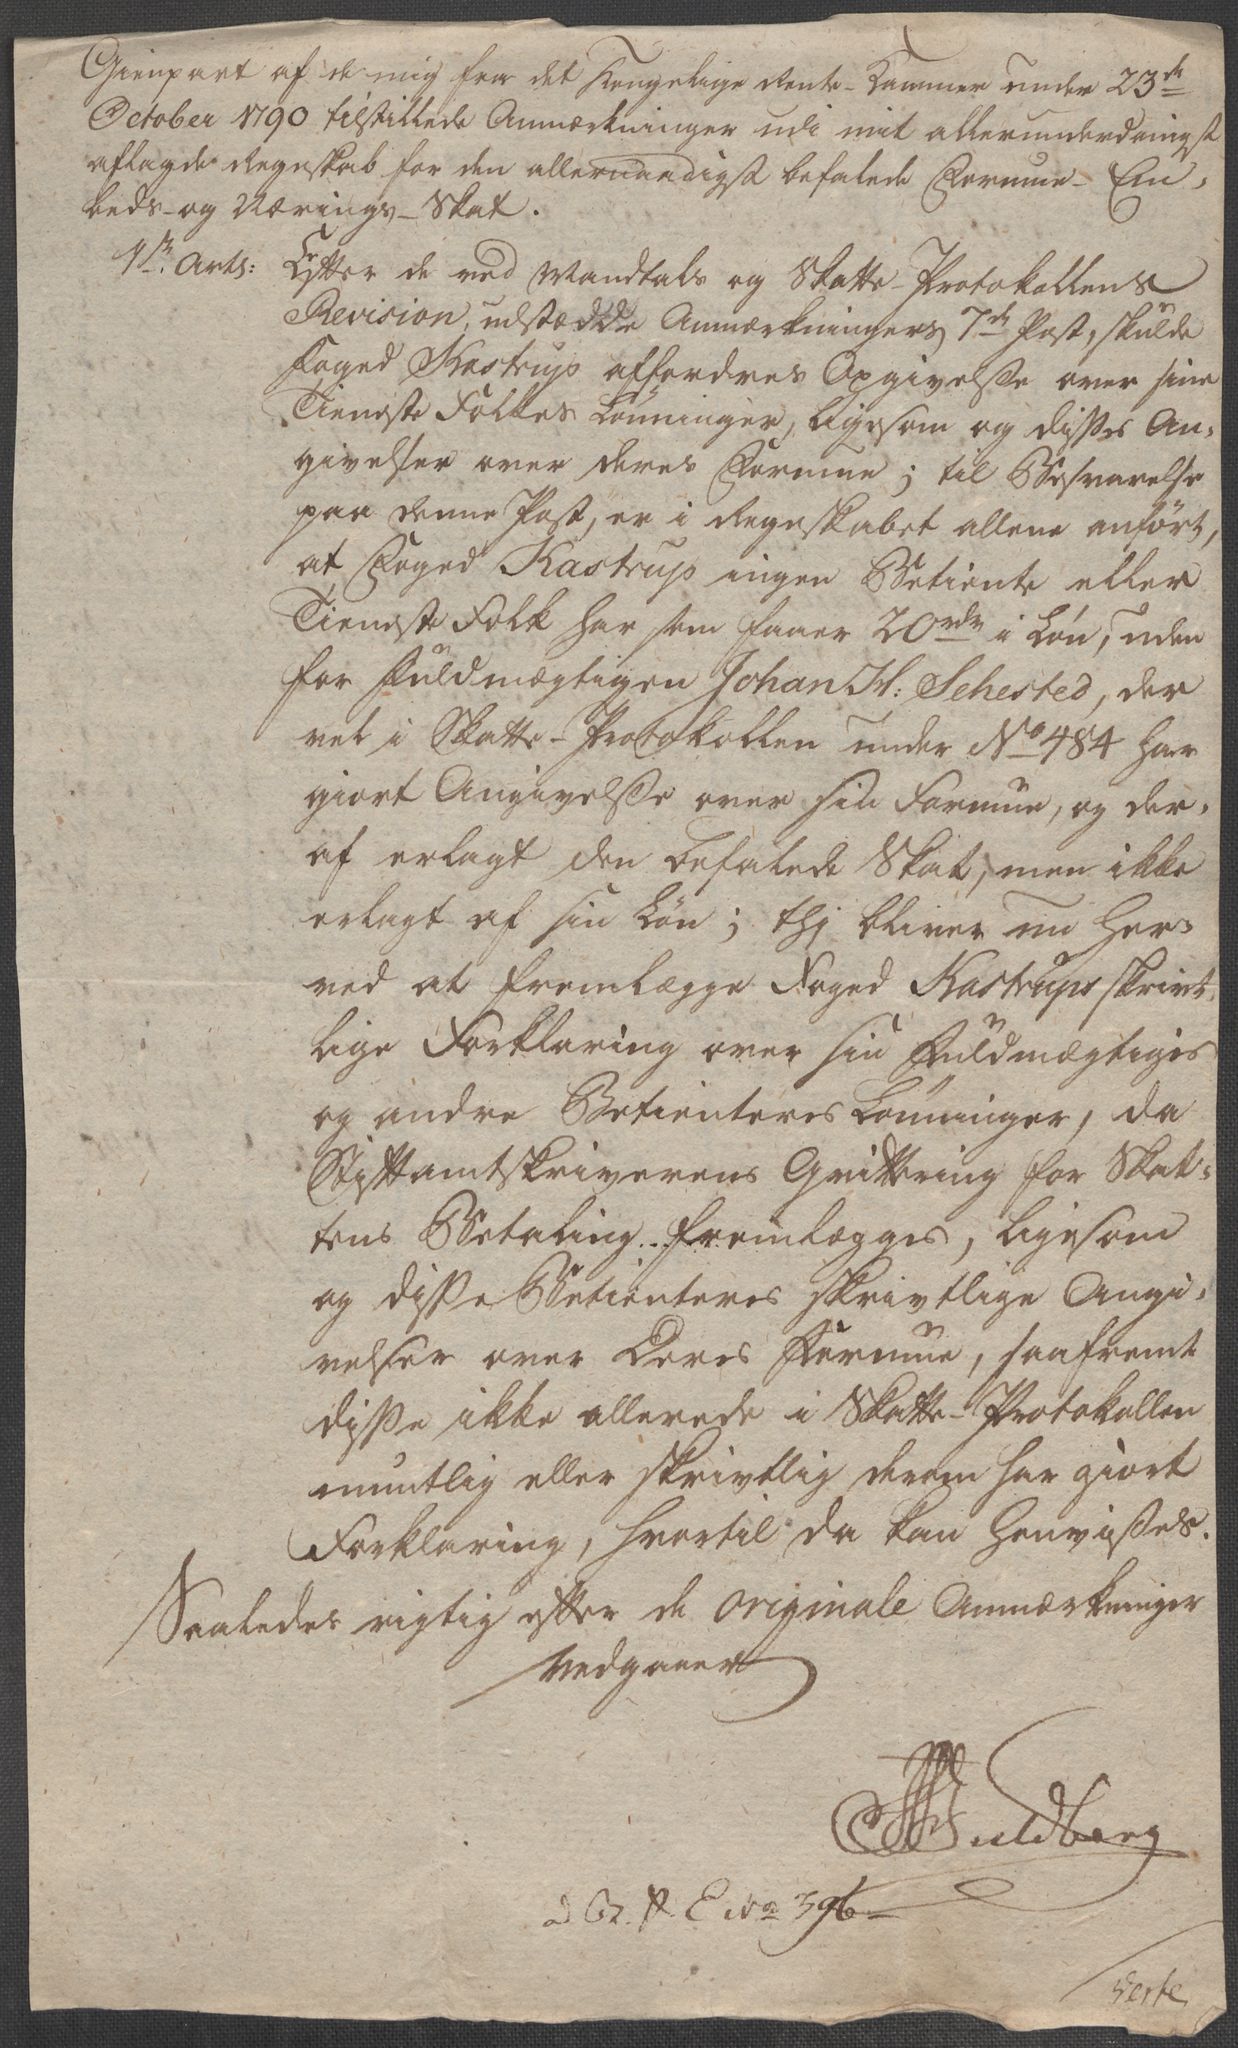 Gienpart af de mig fra det Kongelige Rente-Kammer under 23de
October 1790 tilstillede Anmærkninger udi mit allerunderdanigst
aflagde Regnskab for den allernaadigst befalede Formue- Em-
beds- og Nærings-Skat.
1ste Arts: Efter de ved Mandtals og Skatte-Protokollens
Revision, udstædde Anmærkningers 7de Post, skulde
Foged Kastrup affordres Opgivelse over sine
Tieneste Folkes Lønninger, ligesom og disses An-
givelser over deres Formue; til Besvarelse
paa denne Post, er i Regnskabet allene anført,
at Foged Kastrup ingen Betiente eller
Tieneste Folk har som faaer 20 rdr i Løn, uden
for Fuldmægtigen Johan H: Sehested, der
vel i Skatte-Protokollen under No 484 har
giort Angivelse over sin Formue, og der-
af erlagt den befalede Skat, men ikke
erlagt af sin Løn; thj bliver nu her-
ved at fremlægge Foged Kastrups skrivt-
lige Forklaring over sin Fuldmægtiges
og andre Betienteres Lønninger, da
Stiftamtskriverens Qvittering for Skat-
tens Betaling fremlægges, ligesom
og disse Betienteres skrivtlige Angi-
velser over Deres Formue, saafremt
disse ikke allerede i Skatte-Protokollen
mundtlig eller skrivtlig derom har giort
Forklaring, hvortil da kan henvises.
Saaledes rigtig efter de originale Anmærkninger
Vedgaaer
Guldberg
No 396
Verte